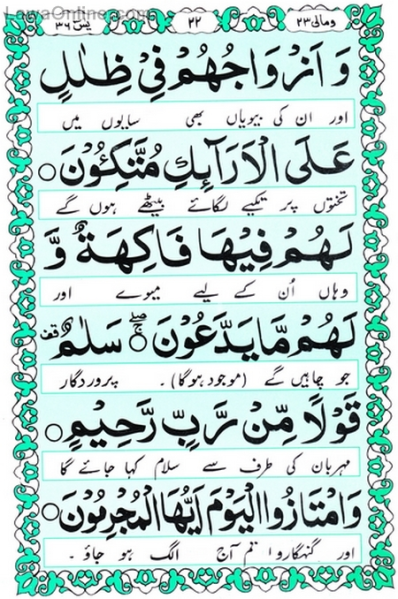 LawaOnline.com
ومالی ۲۳ ۲۲ یٰسٓ ۳۶
وَ اَزْوَاجُهُمْ فِیْ ظِلٰلٍ
اور ان کی بیویاں بھی سایوں میں
عَلَی الْاَرَآئِكِ مُتَّكِـُٔوْنَ ○
تختوں پر تکیے لگائے بیٹھے ہوں گے
لَهُمْ فِیْهَا فَاكِهَةٌ وَّ
وہاں اُن کے لیے میوے اور
لَهُمْ مَّا یَدَّعُوْنَ ○ۚۖ سَلٰمٌ قف
جو چاہیں گے (موجود ہوگا)۔ پروردگار
قَوْلًا مِّنْ رَّبٍّ رَّحِیْمٍ ○
مہربان کی طرف سے سلام کہا جائے گا
وَ امْتَازُوا الْیَوْمَ اَیُّهَا الْمُجْرِمُوْنَ ○
اور گنہگارو! تم آج الگ ہو جاؤ۔